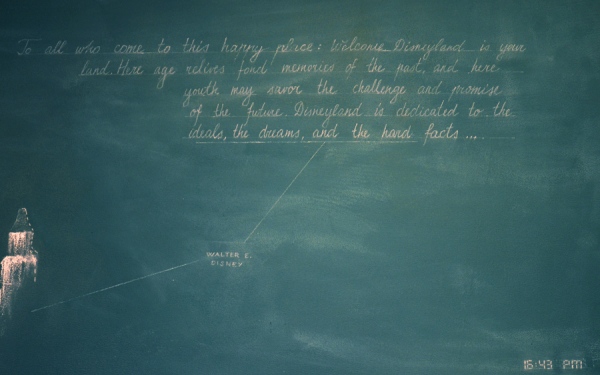 To all who come to this happy place: Welcome. Disneyland is your
land. Here age relives fond memories of the past, and here
youth may savor the challenge and promise
of the future. Disneyland is dedicated to the
ideals, the dreams, and the hard facts ...
WALTER E.
DIZNEY
16:43 PM